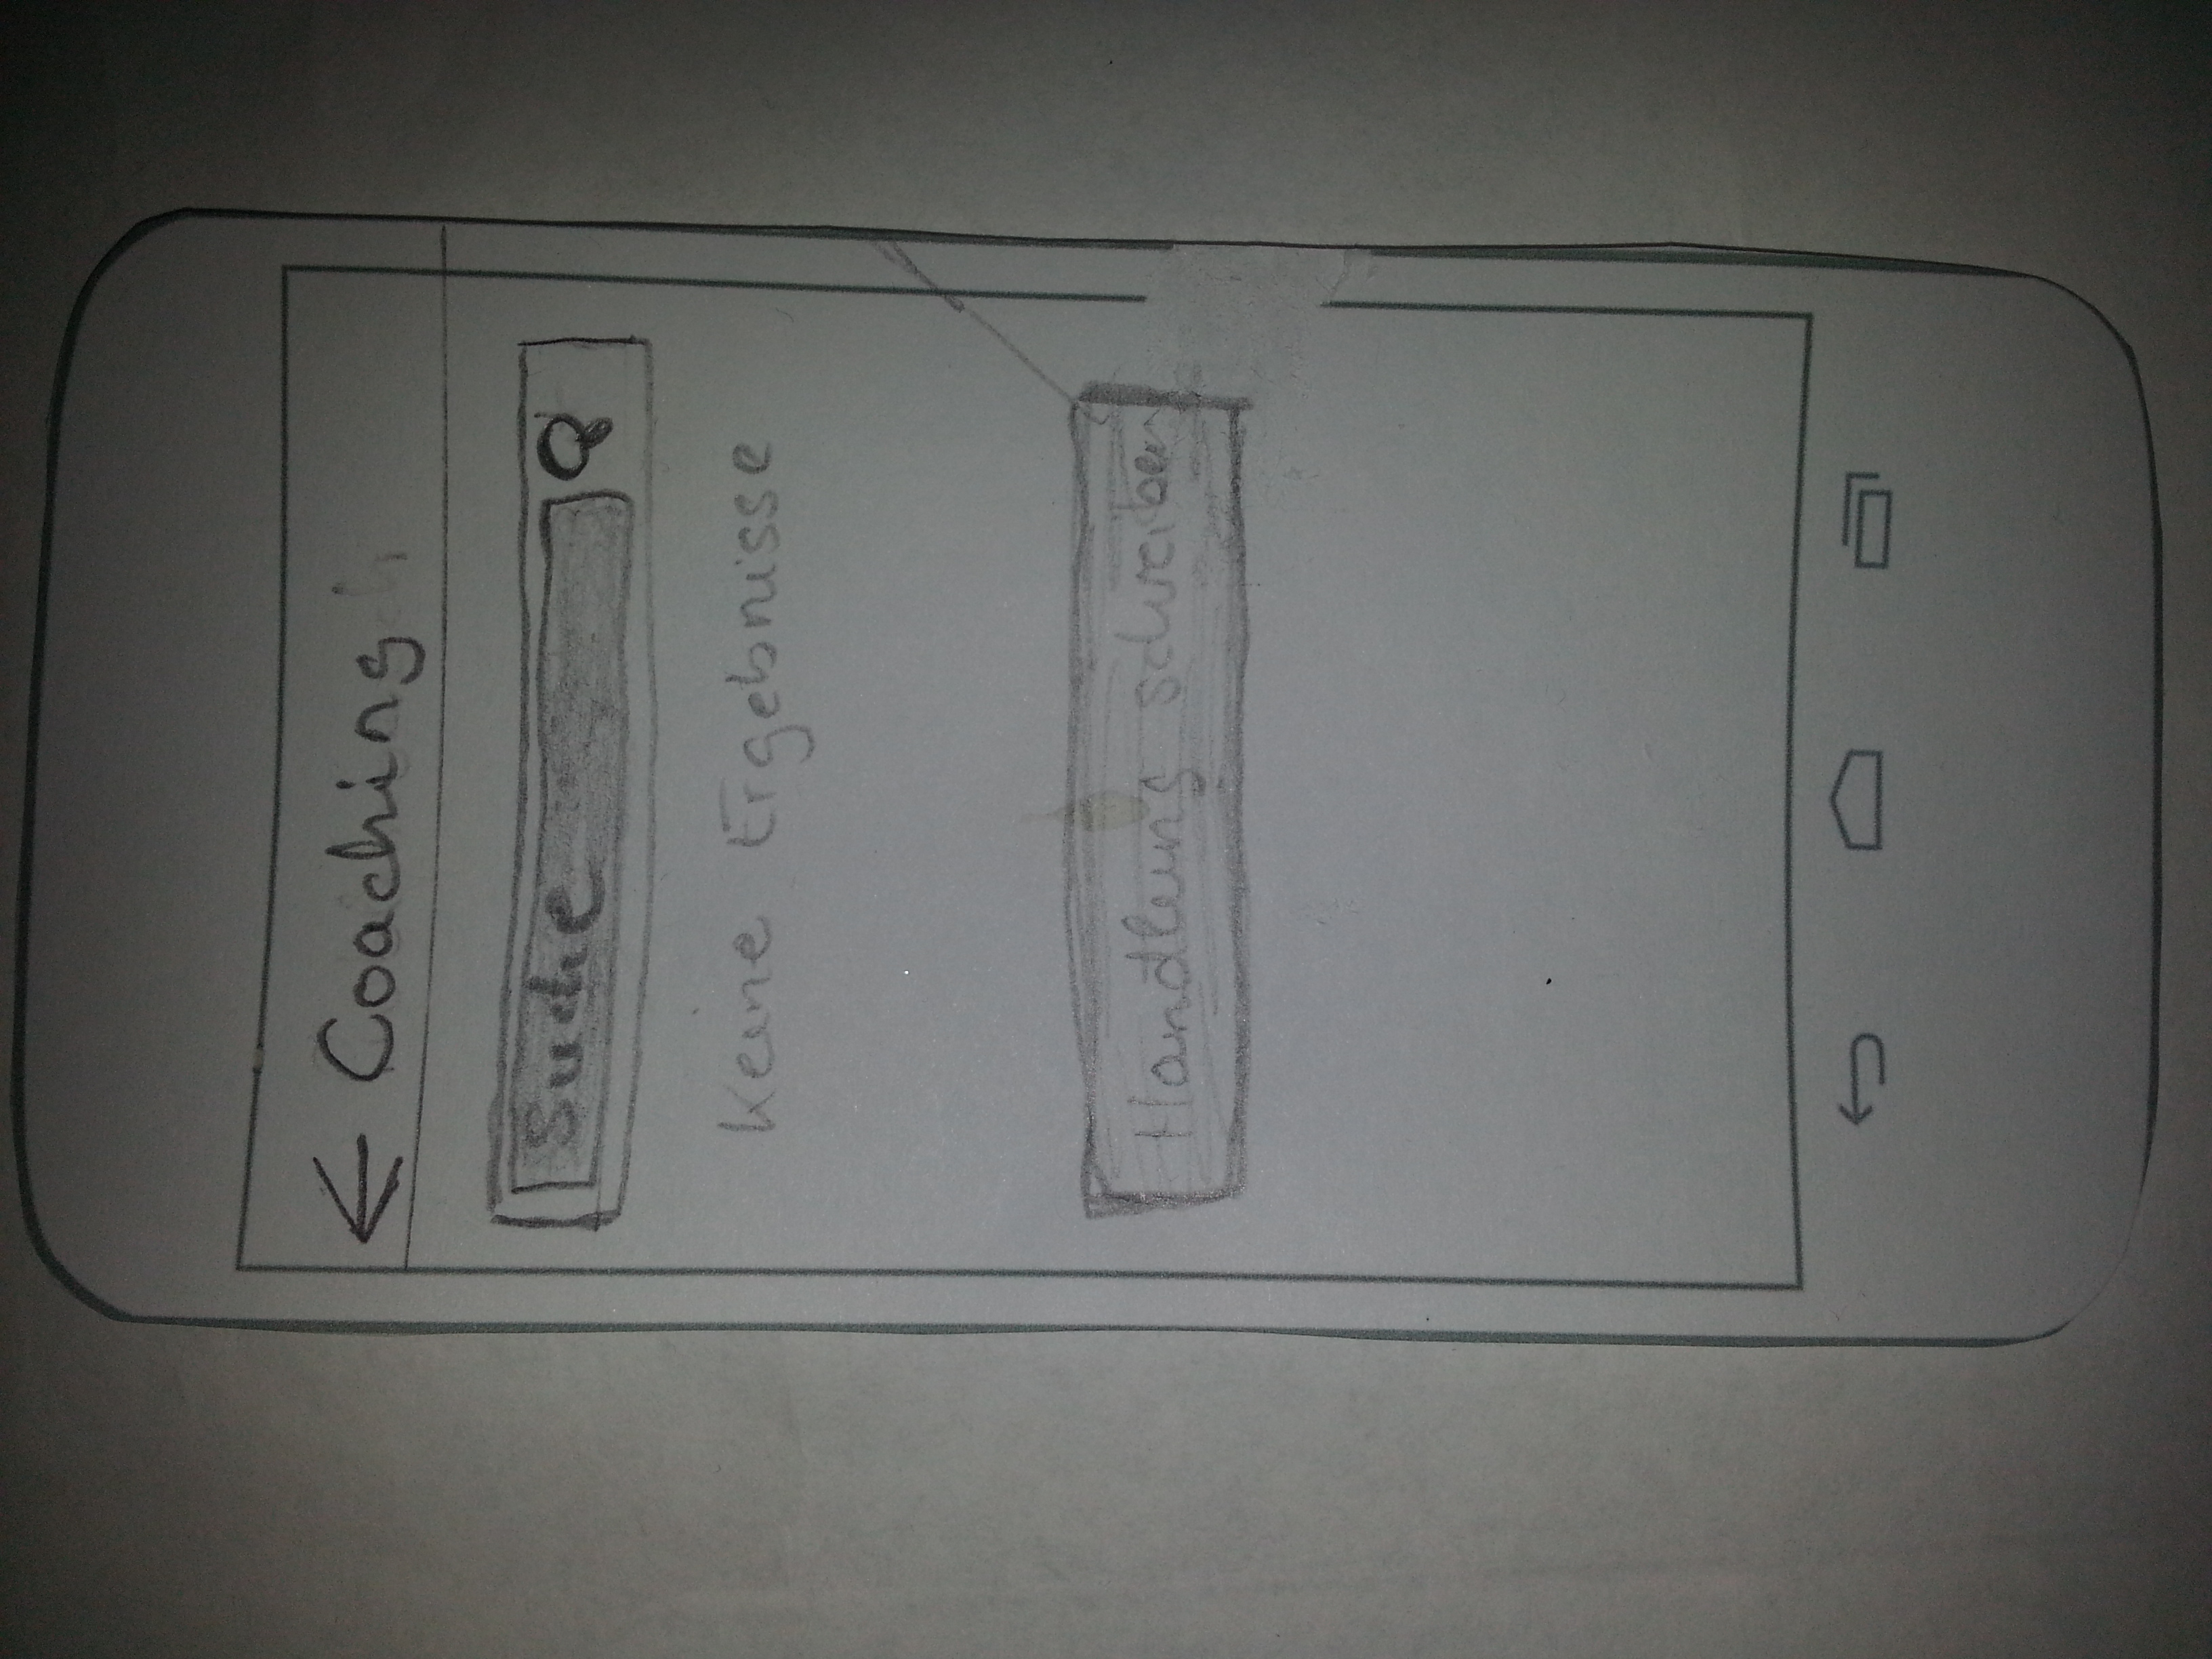 ← Coaching
Suche
Keine Ergebnisse
Handlung schreiben